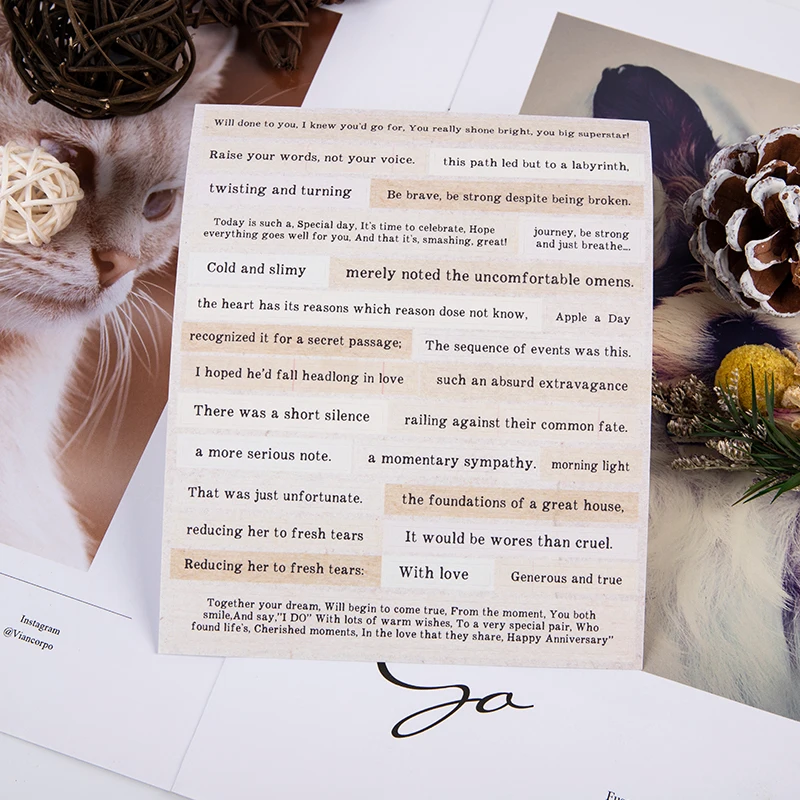 Will done to you, I knew you'd go for, You really shone bright, you big superstar!
Raise your words, not your voice.
this path led but to a labyrinth,
twisting and turning
Be brave, be strong despite being broken.
Today is such a, Special day, It's time to celebrate, Hope
everything goes well for you, And that it's, smashing, great!
journey, be strong
and just breathe...
Cold and slimy
merely noted the uncomfortable omens.
the heart has its reasons which reason dose not know,
Apple a Day
recognized it for a secret passage;
The sequence of events was this.
I hoped he'd fall headlong in love
such an absurd extravagance
There was a short silence
railing against their common fate.
a more serious note.
a momentary sympathy.
morning light
That was just unfortunate.
the foundations of a great house,
reducing her to fresh tears
It would be wores than cruel.
Reducing her to fresh tears:
With love
Generous and true
Together your dream, Will begin to come true, From the moment, You both
smile,And say,"I DO" With lots of warm wishes, To a very special pair, Who
found life's, Cherished moments, In the love that they share, Happy Anniversary"
Instagram
@Viancorpo